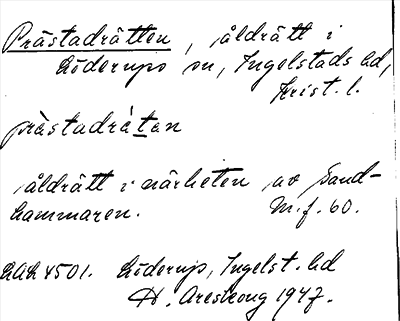 Prästadrätten, åldrätt i
Löderups sn, Ingelstads hd,
Krist. l.
prästadrä̀tan
åldrätt i närheten av Sand-
hammaren. M.f. 60.
LUH 4501. Löderup, Ingelst. hd
H. Areskoug 1947.